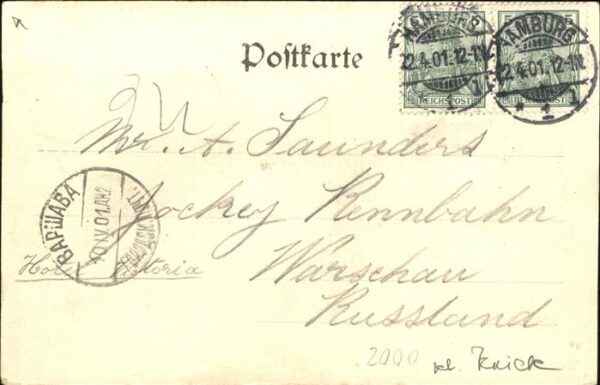 Postkarte
HAMBURG
22.4.01.12-1N.
* 1 i
HAMBURG
22.4.01.12-1N.
* 1 i
REICHSPOST
REICHSPOST
Mr. A. Saunders
Jockey Rennbahn
ВАРШАВА
10 IV 01
Warschau
Russland
2000 kl. Knick